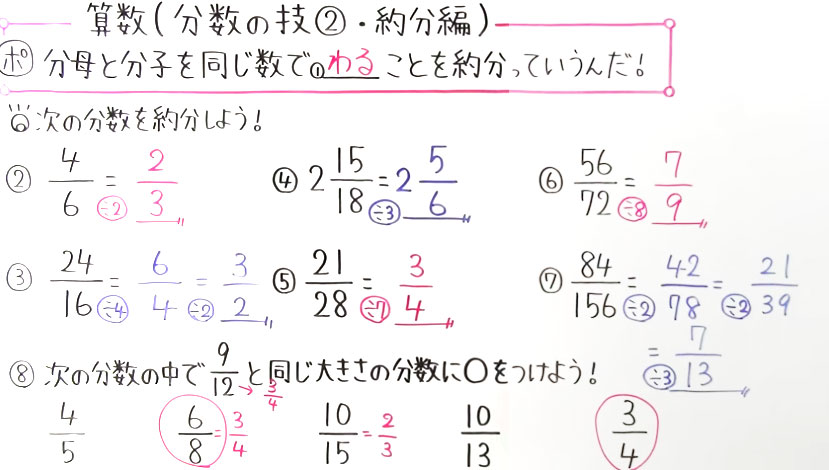 算数(分数の技②・約分編)
ポ 分母と分子を同じ数で①わることを約分っていうんだ!
次の分数を約分しよう!
② 4/6 = 2/3 ÷2
④ 2 15/18 = 2 5/6 ÷3
⑥ 56/72 = 7/9 ÷8
③ 24/16 = 6/4 = 3/2 ÷4 ÷2
⑤ 21/28 = 3/4 ÷7
⑦ 84/156 = 42/78 = 21/39 ÷2 ÷2
= 7/13 ÷3
⑧ 次の分数の中で 9/12 と同じ大きさの分数に○をつけよう!
→ 3/4
4/5 6/8 = 3/4 10/15 = 2/3 10/13 3/4